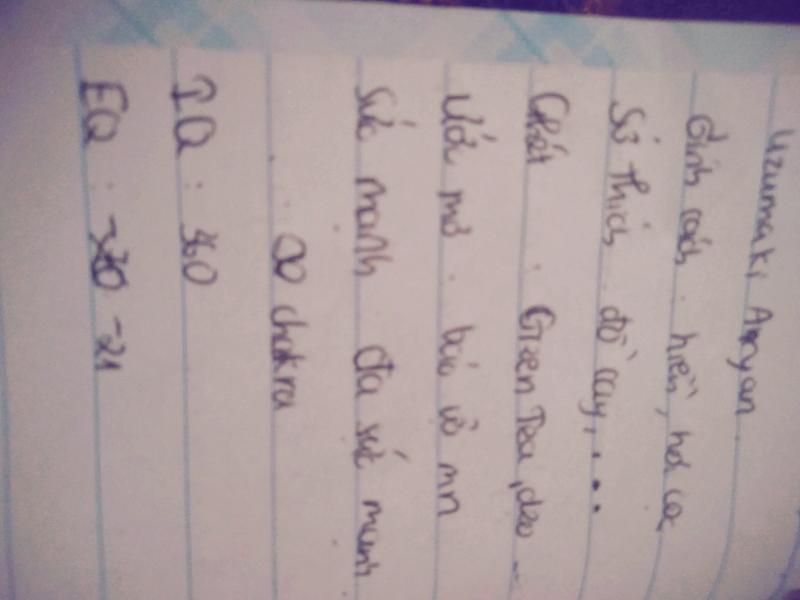 Uzumaki Anryan
tính cách : hiền, hơi
Sở thích : đồ cay, ...
Ghét : Green Tea, dao ...
Ước mơ : bảo vệ mn
Sức mạnh : đa sức mạnh
: ∞ chakra
IQ : 360
EQ :